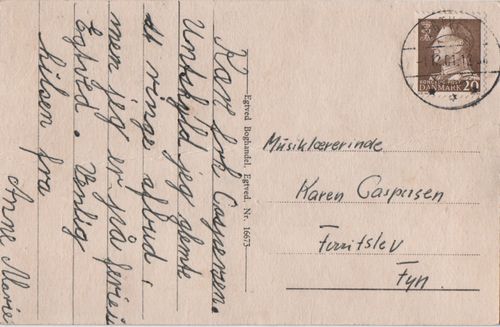 Kære frk Caspersen.
Undskyld jeg glemte
at ringe afbud,
men jeg er på ferie i
Egtved. Venlig
hilsen fra
Anne Marie
Egtved Boghandel, Egtved. Nr. 16673
KONGELIG POST
DANMARK 20
Musiklærerinde
Karen Caspersen
Ferritslev
Fyn.